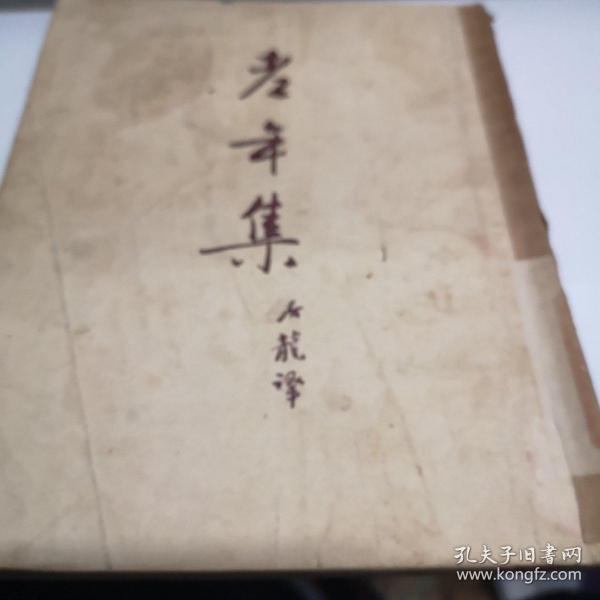 老年集
石龍譯
孔夫子旧書网
www.kongfz.com